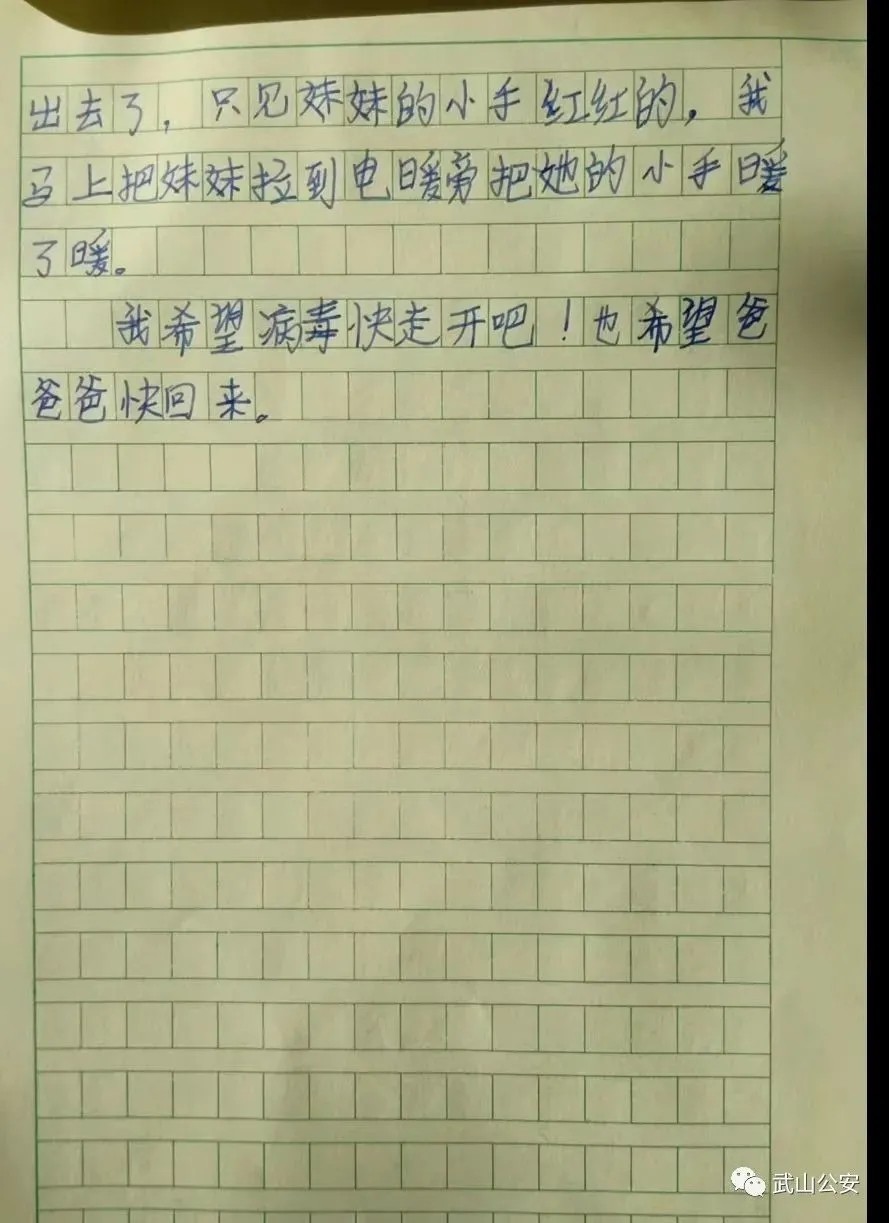 出去了，只见妹妹的小手红红的，我
马上把妹妹拉到电暖旁把她的小手暖
了暖。
我希望病毒快走开吧！也希望爸
爸爸快回来。
武山公安